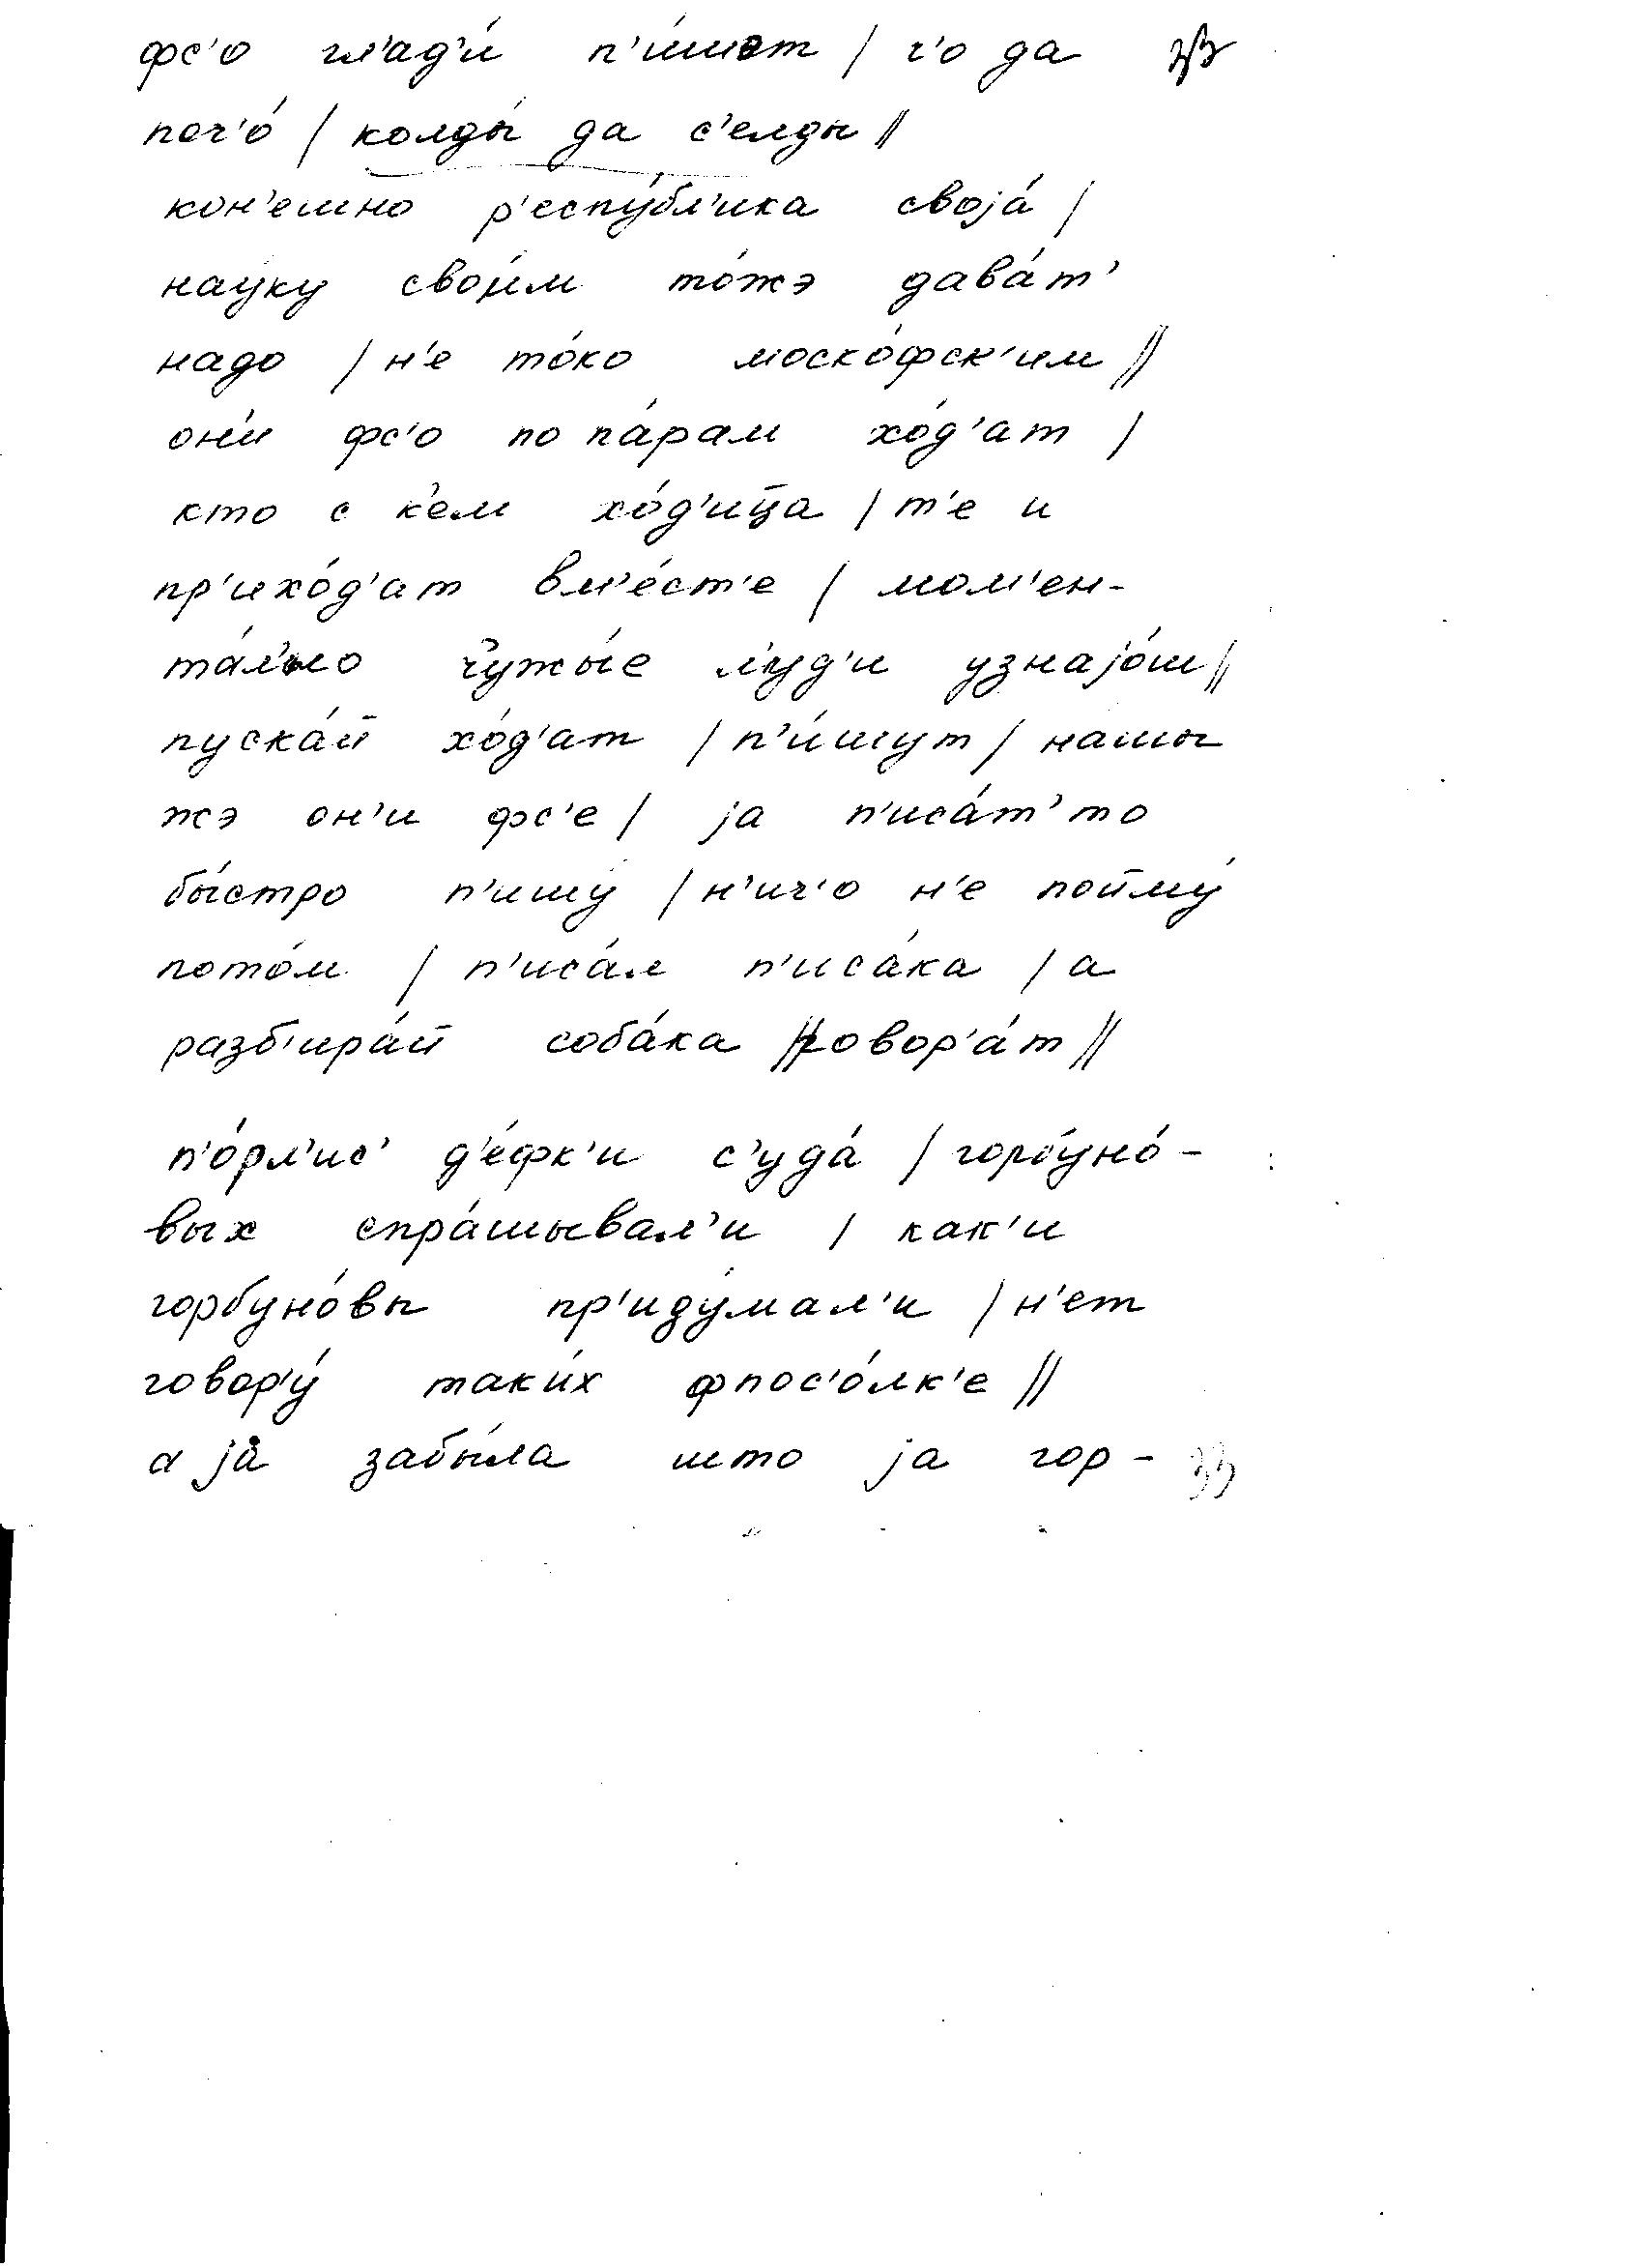 фс'о гл'ад'и́ п'и́шэт / ч'о да 33
поч'о́ / колды́ да с'елды //
кон'ешно р'еспу́бл'ика своjа́ /
нау́ку свои́м то́жэ дава́т'
надо / н'е то́ко моско́фск'им //
они́ фс'о по па́рам хо́д'ат /
кто с к'ем хо́д'ица / т'е и
пр'ихо́д'ат вм'е́ст'е / мом'ен-
та́л'но чужы́е л'у́д'и узнаjо́ш //
пуска́й хо́д'ат / п'и́шут / нашы
жэ он'и фс'е / jа п'иса́т' то
бы́стро п'ишу́ / н'ич'о н'е пойму́
пото́м / п'иса́л п'иса́ка / а
разб'ира́й соба́ка // говор'а́т //
п'о́рл'ис' д'е́фк'и с'уда́ / горбуно́-
вых спра́шывал'и / как'и
горбуно́вы пр'иду́мал'и / н'ет
говор'у́ таки́х фпос'о́лк'е //
а jа́ забы́ла што jа гор- 33